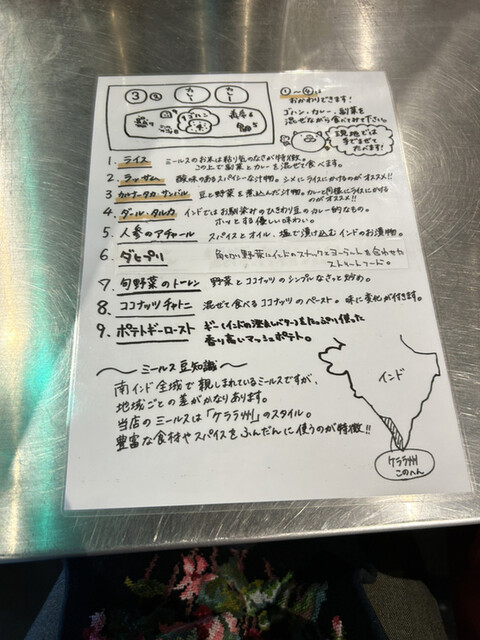 ③ ② カレー カレー
①〜④は
おかわりできます!
ゴハン・カレー・副菜を
混ぜながら食べてみて下さい。
現地では
手でまぜて
たべます!
1. ライス ミールスのお米は粘り気のなさが特徴。
この上で副菜とカレーを混ぜて食べます。
2. ラッサム 酸味のあるスパイシーな汁物。シメにライスにかけるのがオススメ!!
3. カルナータカ・サンバル 豆と野菜を煮込んだ汁物。カレーと同様にライスにかける
のがオススメ!!
4. ダール・タルカ インドではお馴染みのひきわり豆のカレー的なもの。
ホッとする優しい味わい。
5. 人参のアチャール スパイスとオイル、塩で漬け込むインドのお漬物。
6. ダヒプリ インドのスナックとヨーグルトを合わせた
ストリートフード。
7. 旬野菜のトーレン 野菜とココナッツのシンプルなさっと炒め。
8. ココナッツチャトニ 混ぜて食べるココナッツのペースト。味に変化が付きます。
9. ポテトギーロースト ギー(インドの澄ましバター)をたっぷり使った
香り高いマッシュポテト。
〜ミールス豆知識〜
南インド全域で親しまれているミールスですが、
地域ごとの差がかなりあります。
当店のミールスは「ケララ州」のスタイル。
豊富な食材やスパイスをふんだんに使うのが特徴!!
インド
ケララ州
このへん